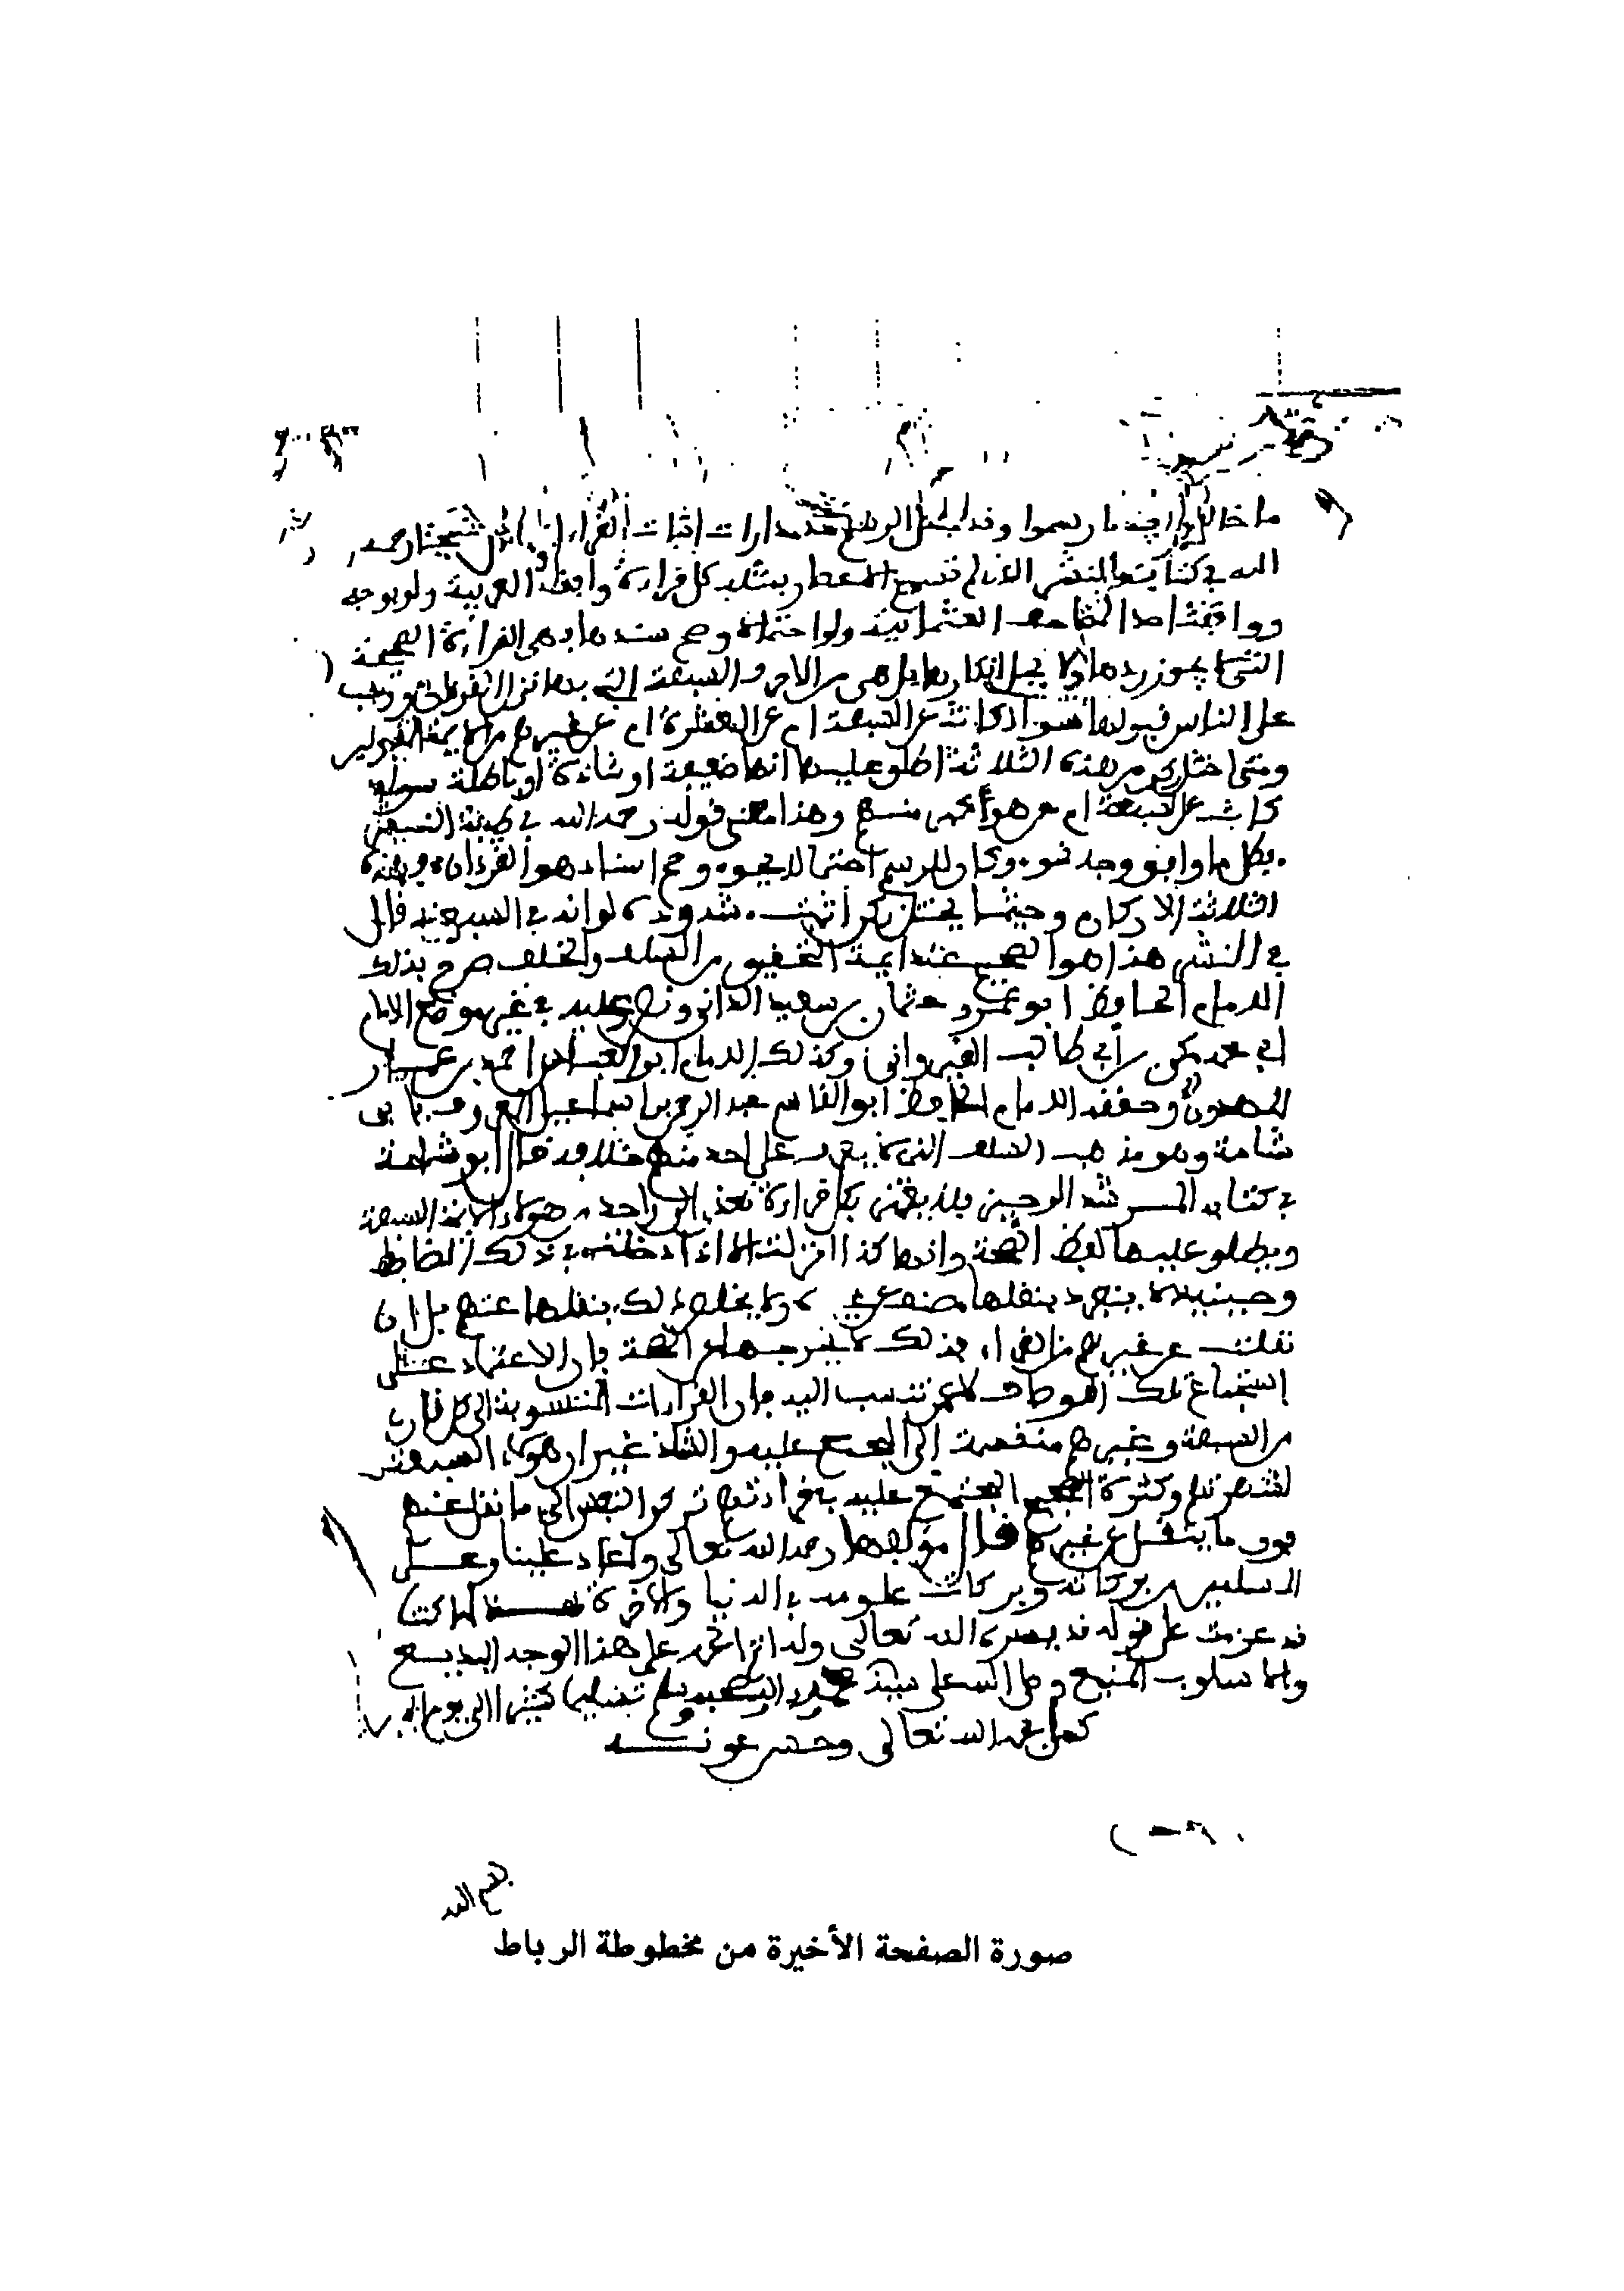 الله في كتابه النشر الذي لم تسمح الاعصار بمثله كل قراءة وافقت العربية ولو بوجه
ووافقت احد المصاحف العثمانية ولو احتمالا وصح سندها فهي القراءة الصحيحة
التي لا يجوز ردها ولا يحل انكارها بل هي من الاحرف السبعة التي بها نزل القرءان ووجب
على الناس قبولها سواء كانت عن السبعة ام عن العشرة ام عن غيرهم من الايمة المقبولين
ومتى اختل ركن من هذه الثلاثة اطلق عليها انها ضعيفة او شاذة او باطلة سواء
كانت عن السبعة ام عن هو أكبر منهم وهذا معنى قوله رحمه الله في طيبة النشر
فكل ما وافق وجه نحو وكان للرسم احتمالا يحوي وصح اسنادا هو القرءان فهذه
الثلاثة الاركان وحيثما يختل ركن أثبت شذوذه لو انه في السبعة قال
في النشر هذا هو الصحيح عند ايمة التحقيق من السلف والخلف صرح بذلك
الامام الحافظ ابو عمرو عثمان بن سعيد الداني ونص عليه في غير موضع الامام
ابي محمد مكي بن أبي طالب القيرواني وكذلك الامام ابو العباس احمد بن عمار
المهدوي وحققه الامام الحافظ ابو القاسم عبد الرحمن بن اسماعيل المعروف بابي
شامة وهو مذهب السلف الذي لا يعرف على احد منهم خلافه قال ابو شامة
في كتابه المرشد الوجيز فلا يغتر بكل قراءة تعزى الى واحد من هؤلاء الايمة السبعة
ويطلق عليها لفظ الصحة وانها كذا انزلت الا اذا دخلت في ذلك الضابط
وحينيذ لا ينفرد بنقلها مصنف عن غيره ولا يختص ذلك بنقلها عنهم بل ان
نقلت عن غيرهم من القراء فذلك لا يخرجها عن الصحة فان الاعتماد على
استجماع تلك الاوصاف لا عمن تنسب اليه فان القراءات المنسوبة الى كل قارئ
من السبعة وغيرهم منقسمة إلى المجمع عليه والشاذ غير ان هؤلاء السبعة
لشهرتهم وكثرة الصحيح المجتمع عليه في قراءتهم تركن النفس الى ما نقل عنهم
فوق ما ينقل عن غيرهم قال مؤلفها رحمه الله تعالى واعاد علينا وعلى
المسلمين من بركاته وبركات علومه في الدنيا والاخرة
قد عزمت على قوله قد يسره الله تعالى وله الحمد على هذا الوجه البديع
والاسلوب المنيع وصلى الله على سيدنا محمد واله وصحبه وسلم تسليما كثيرا الى يوم الدين
كمل بحمد الله تعالى وحسن عونه
صورة الصفحة الأخيرة من مخطوطة الرباط